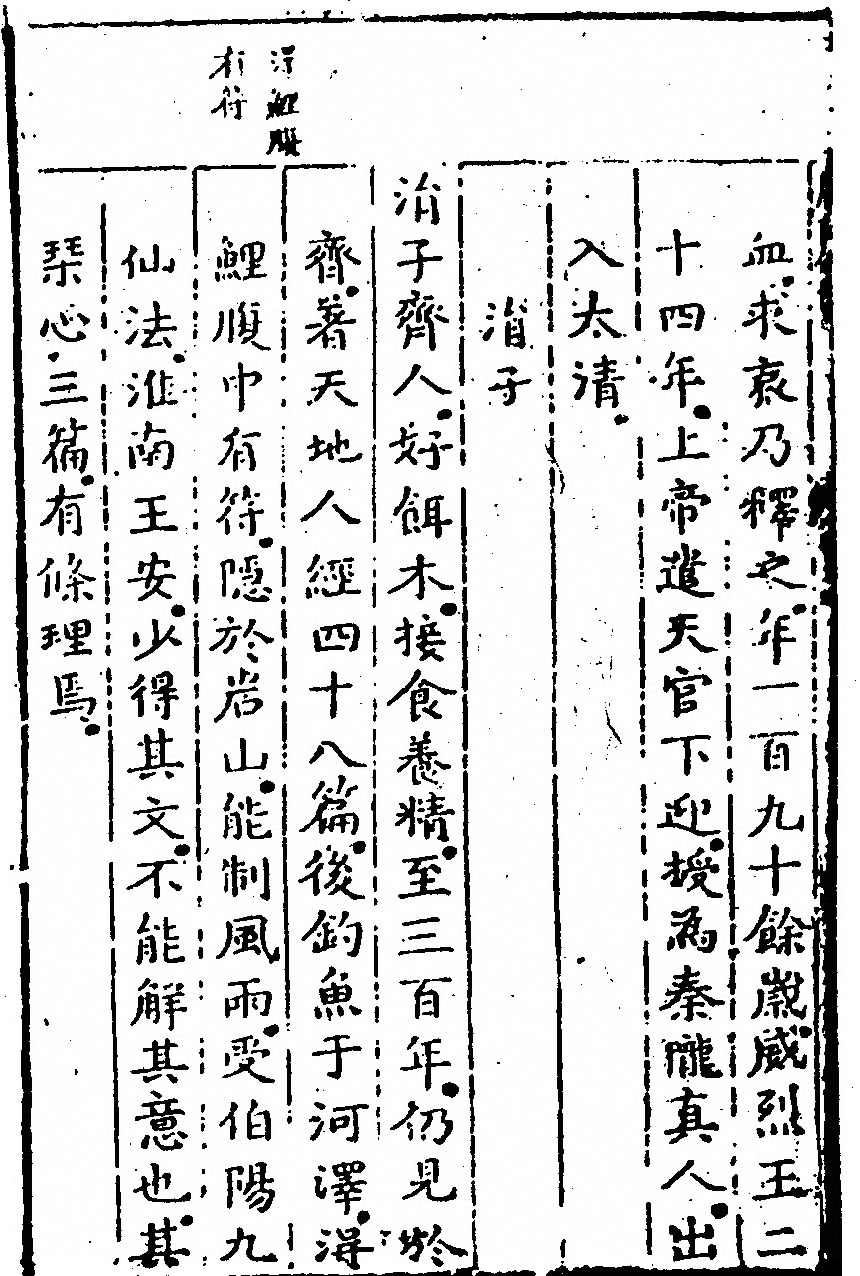 得鯉腹
有符
血求哀乃釋之年一百九十餘歲威烈王二
十四年上帝遣天官下迎授為秦隴真人出
入太清
涓子
涓子齊人好餌木接食養精至三百年仍見於
齊著天地人經四十八篇後釣魚于河澤得
鯉腹中有符隱於岩山能制風雨受伯陽九
仙法淮南王安少得其文不能解其意也其
琹心三篇有條理焉